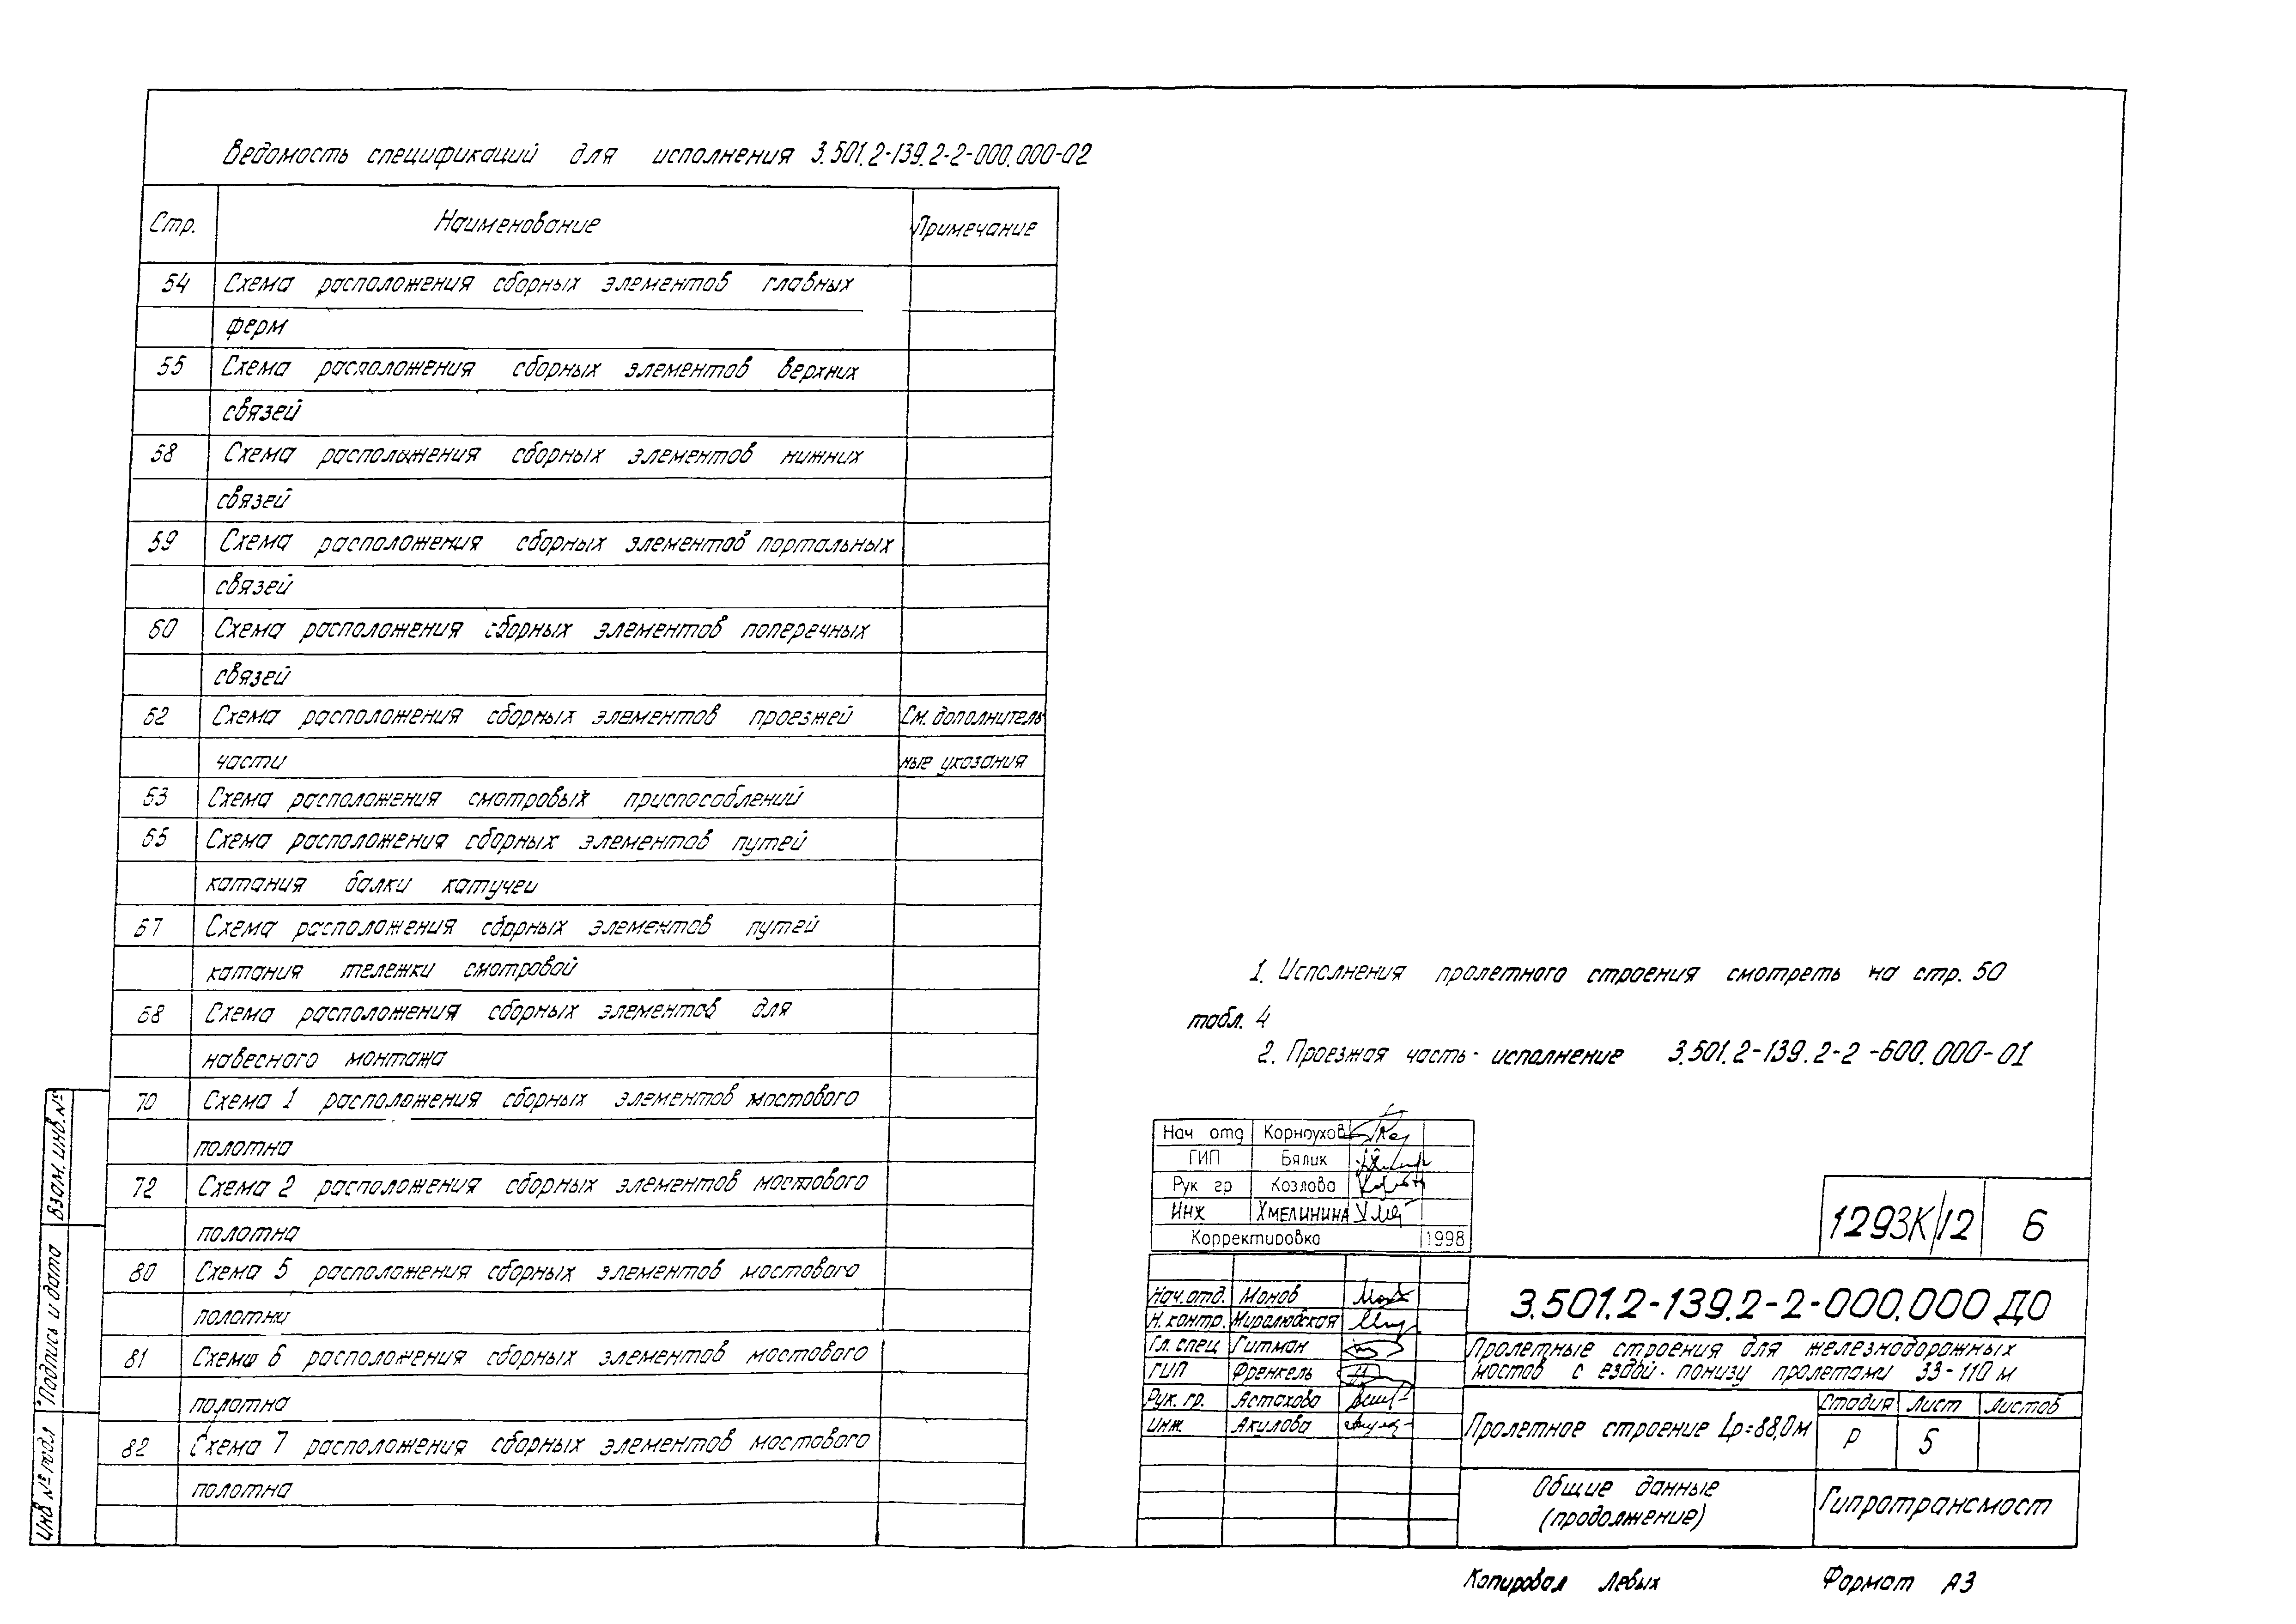 Ведомость спецификаций для исполнения 3.501.2-139.2-2-000.000-02
Стр. Наименование Примечание
54 Схема расположения сборных элементов главных
ферм
55 Схема расположения сборных элементов верхних
связей
58 Схема расположения сборных элементов нижних
связей
59 Схема расположения сборных элементов портальных
связей
60 Схема расположения сборных элементов поперечных
связей
62 Схема расположения сборных элементов проезжей См. дополнитель
части ные указания
63 Схема расположения смотровых приспособлений
65 Схема расположения сборных элементов путей
катания балки катучеи
67 Схема расположения сборных элементов путей
катания тележки смотровой
68 Схема расположения сборных элементов для
навесного монтажа
70 Схема 1 расположения сборных элементов мостового
полотна
72 Схема 2 расположения сборных элементов мостового
полотна
80 Схема 5 расположения сборных элементов мостового
полотна
81 Схема 6 расположения сборных элементов мостового
полотна
82 Схема 7 расположения сборных элементов мостового
полотна
1. Исполнения пролетного строения смотреть на стр. 50
табл. 4
2. Проезжая часть - исполнение 3.501.2-139.2-2-600.000-01
Нач отд Корноухов
ГИП Бялик
Рук гр Козлова
Инж Хмелинина
Корректировка 1998
1293К/12 6
Нач. отд. Монов
Н. контр. Миролюбская
Гл. спец Гитман
ГИП Френкель
Рук. гр. Астахова
Инж. Акулова
3.501.2-139.2-2-000.000 ДО
Пролетные строения для железнодорожных
мостов с ездой понизу пролетами 33-110 м
Пролетное строение Lр=88,0м
Стадия Лист Листов
Р 5
Общие данные
(продолжение)
Гипротрансмост
Взам. инв. №
Подпись и дата
Инв № подл
Копировал Левых Формат А3